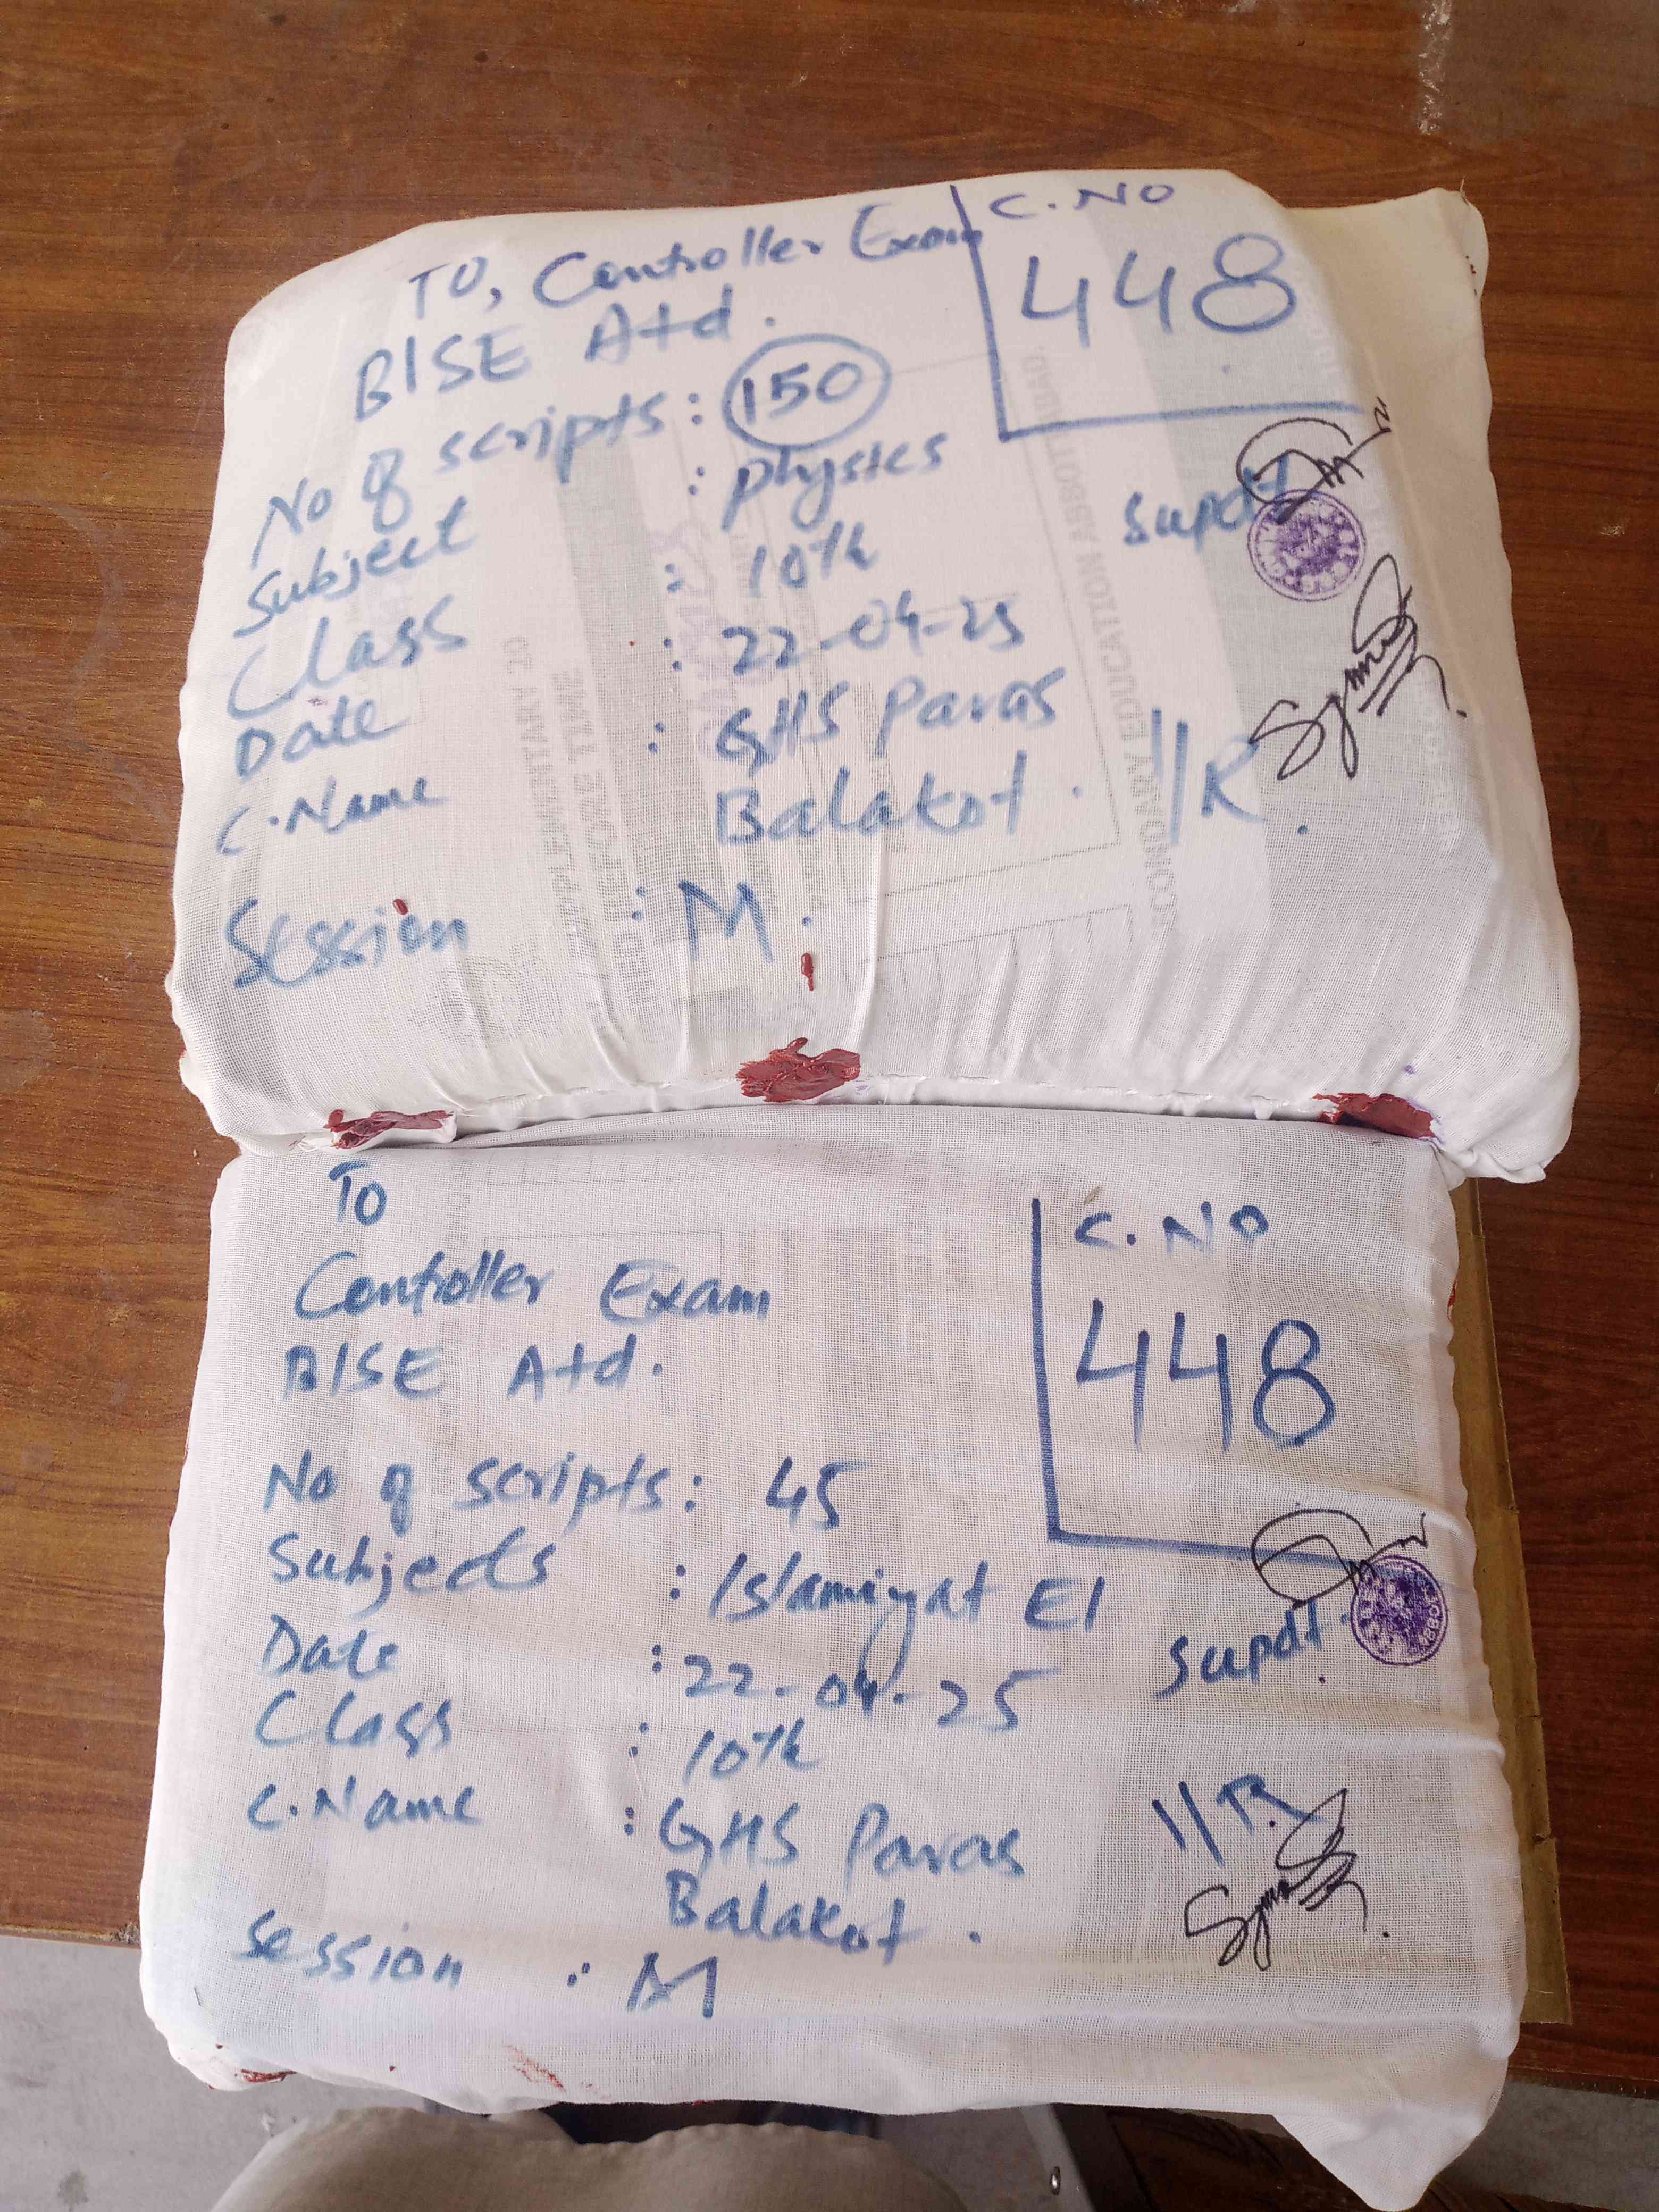 TO, Controller Exam
BISE Atd.
C.NO
448
No of scripts : 150
Subject : physics
Class : 10th
Date : 22-04-25
C.Name : GHS Paras
Balakot.
Session : M.
Supdt
I/R.
SECONDARY EDUCATION ABBOTTABAD
To
Controller Exam
BISE Atd.
C.NO
448
No of scripts : 45
Subjects : Islamiyat El
Date : 22-04-25
Class : 10th
C.Name : GHS Paras
Balakot.
Session : M
Supdt.
I/R